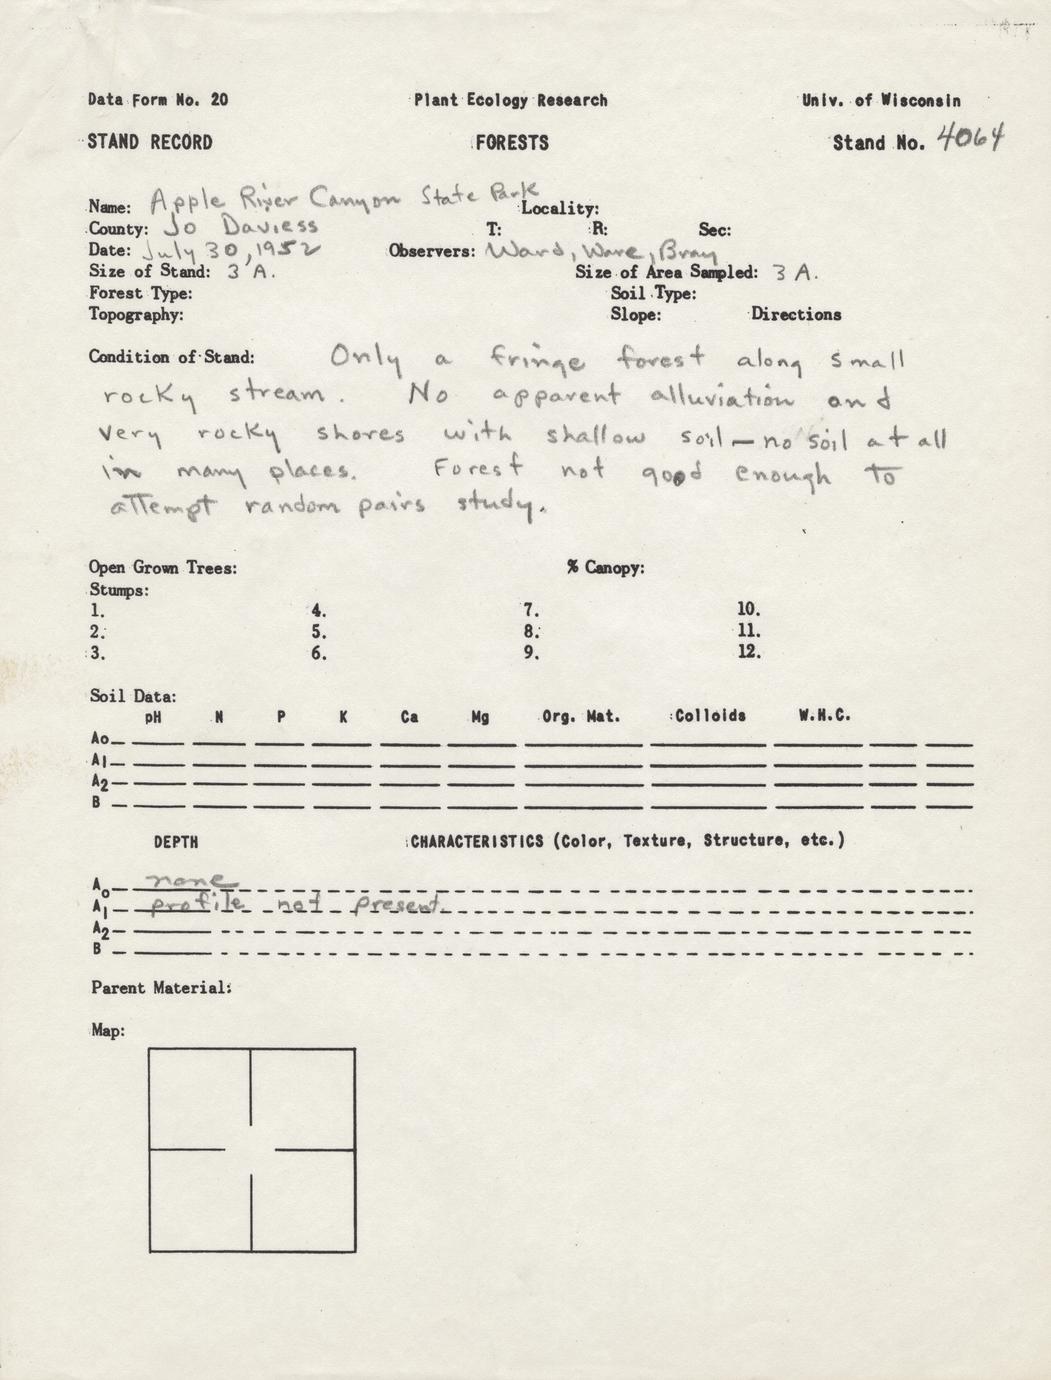 Data Form No. 20 Plant Ecology Research Univ. of Wisconsin
STAND RECORD FORESTS Stand No. 4064
Name: Apple River Canyon State Park Locality:
County: Jo Daviess T: R: Sec:
Date: July 30, 1952 Observers: Ward, Ware, Bray
Size of Stand: 3 A. Size of Area Sampled: 3 A.
Forest Type: Soil Type:
Topography: Slope: Directions
Condition of Stand: Only a fringe forest along small
rocky stream. No apparent alluviation and
very rocky shores with shallow soil — no soil at all
in many places. Forest not good enough to
attempt random pairs study.
Open Grown Trees: % Canopy:
Stumps:
1. 4. 7. 10.
2. 5. 8. 11.
3. 6. 9. 12.
Soil Data:
pH N P K Ca Mg Org. Mat. Colloids W.H.C.
Ao
A1
A2
B
DEPTH CHARACTERISTICS (Color, Texture, Structure, etc.)
Ao none
A1 profile not present
A2
B
Parent Material:
Map: